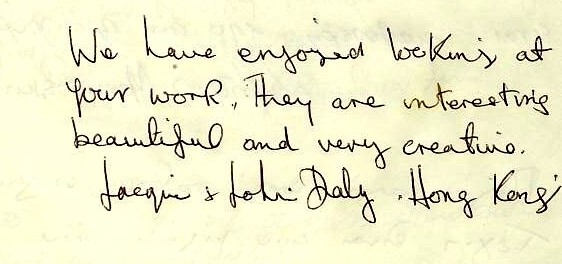 We have enjoyed looking at
your work. They are interesting
beautiful and very creative.
Jacqui & John Daly. Hong Kong